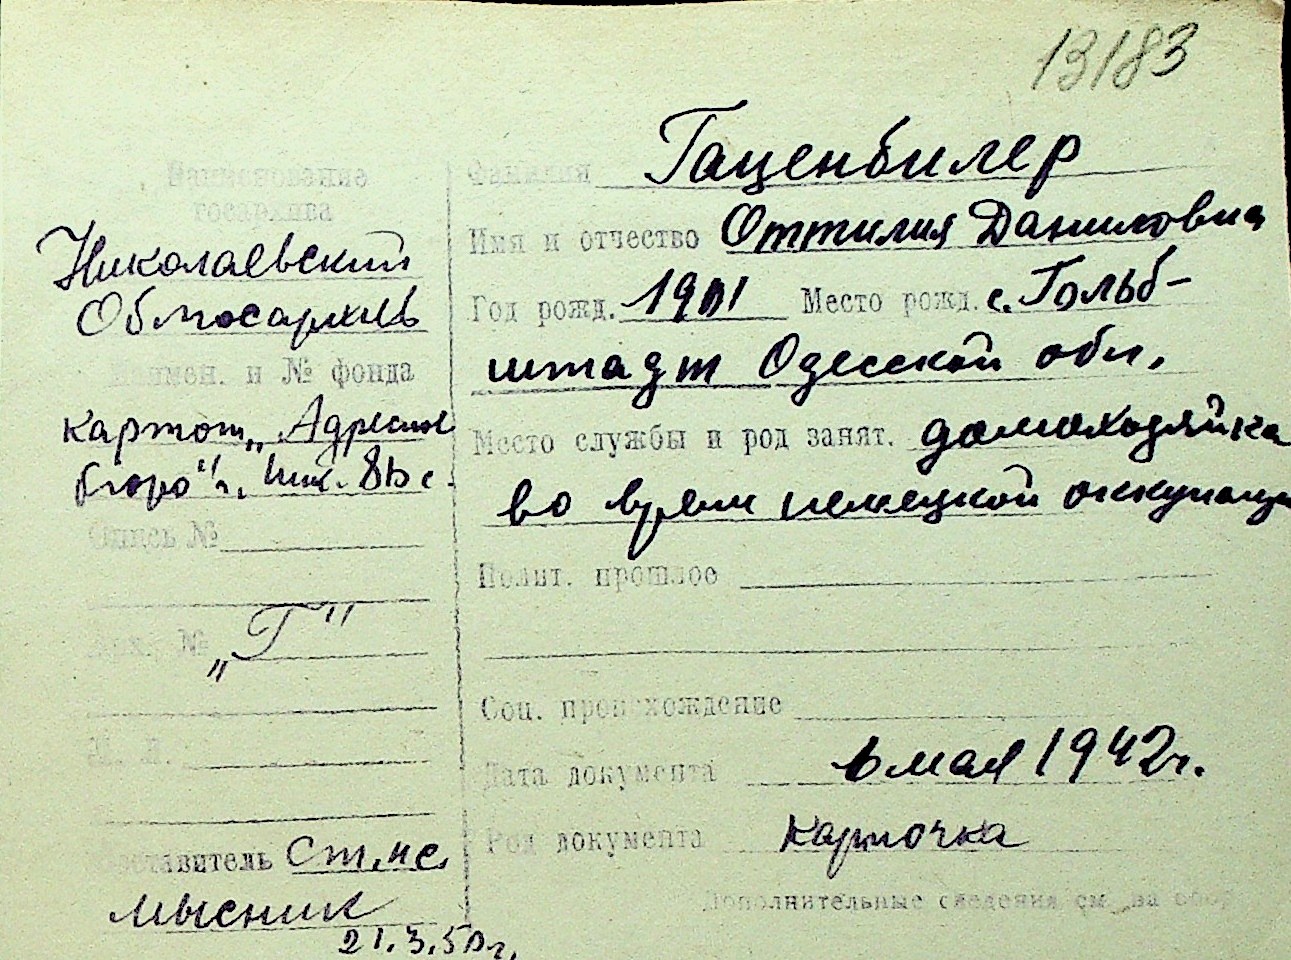 13183
Наименование
госархива
Николаевский
Облгосархив
Наимен. и № фонда
картот. „Адресное
бюро" г. Ник.
Опись №
Арх. № „Г"
Л. л.
Составитель Ст. н.с.
Мысник
21.3.50 г.
Фамилия Гаценбилер
Имя и отчество Оттилия Даниловна
Год рожд. 1901 Место рожд. с. Гольб-
штадт Одесской обл.
Место службы и род занят. домохозяйка
во время немецкой оккупации
Полит. прошлое
Соц. происхождение
Дата документа 6 мая 1942 г.
Род документа карточка
Дополнительные сведения см. на обор